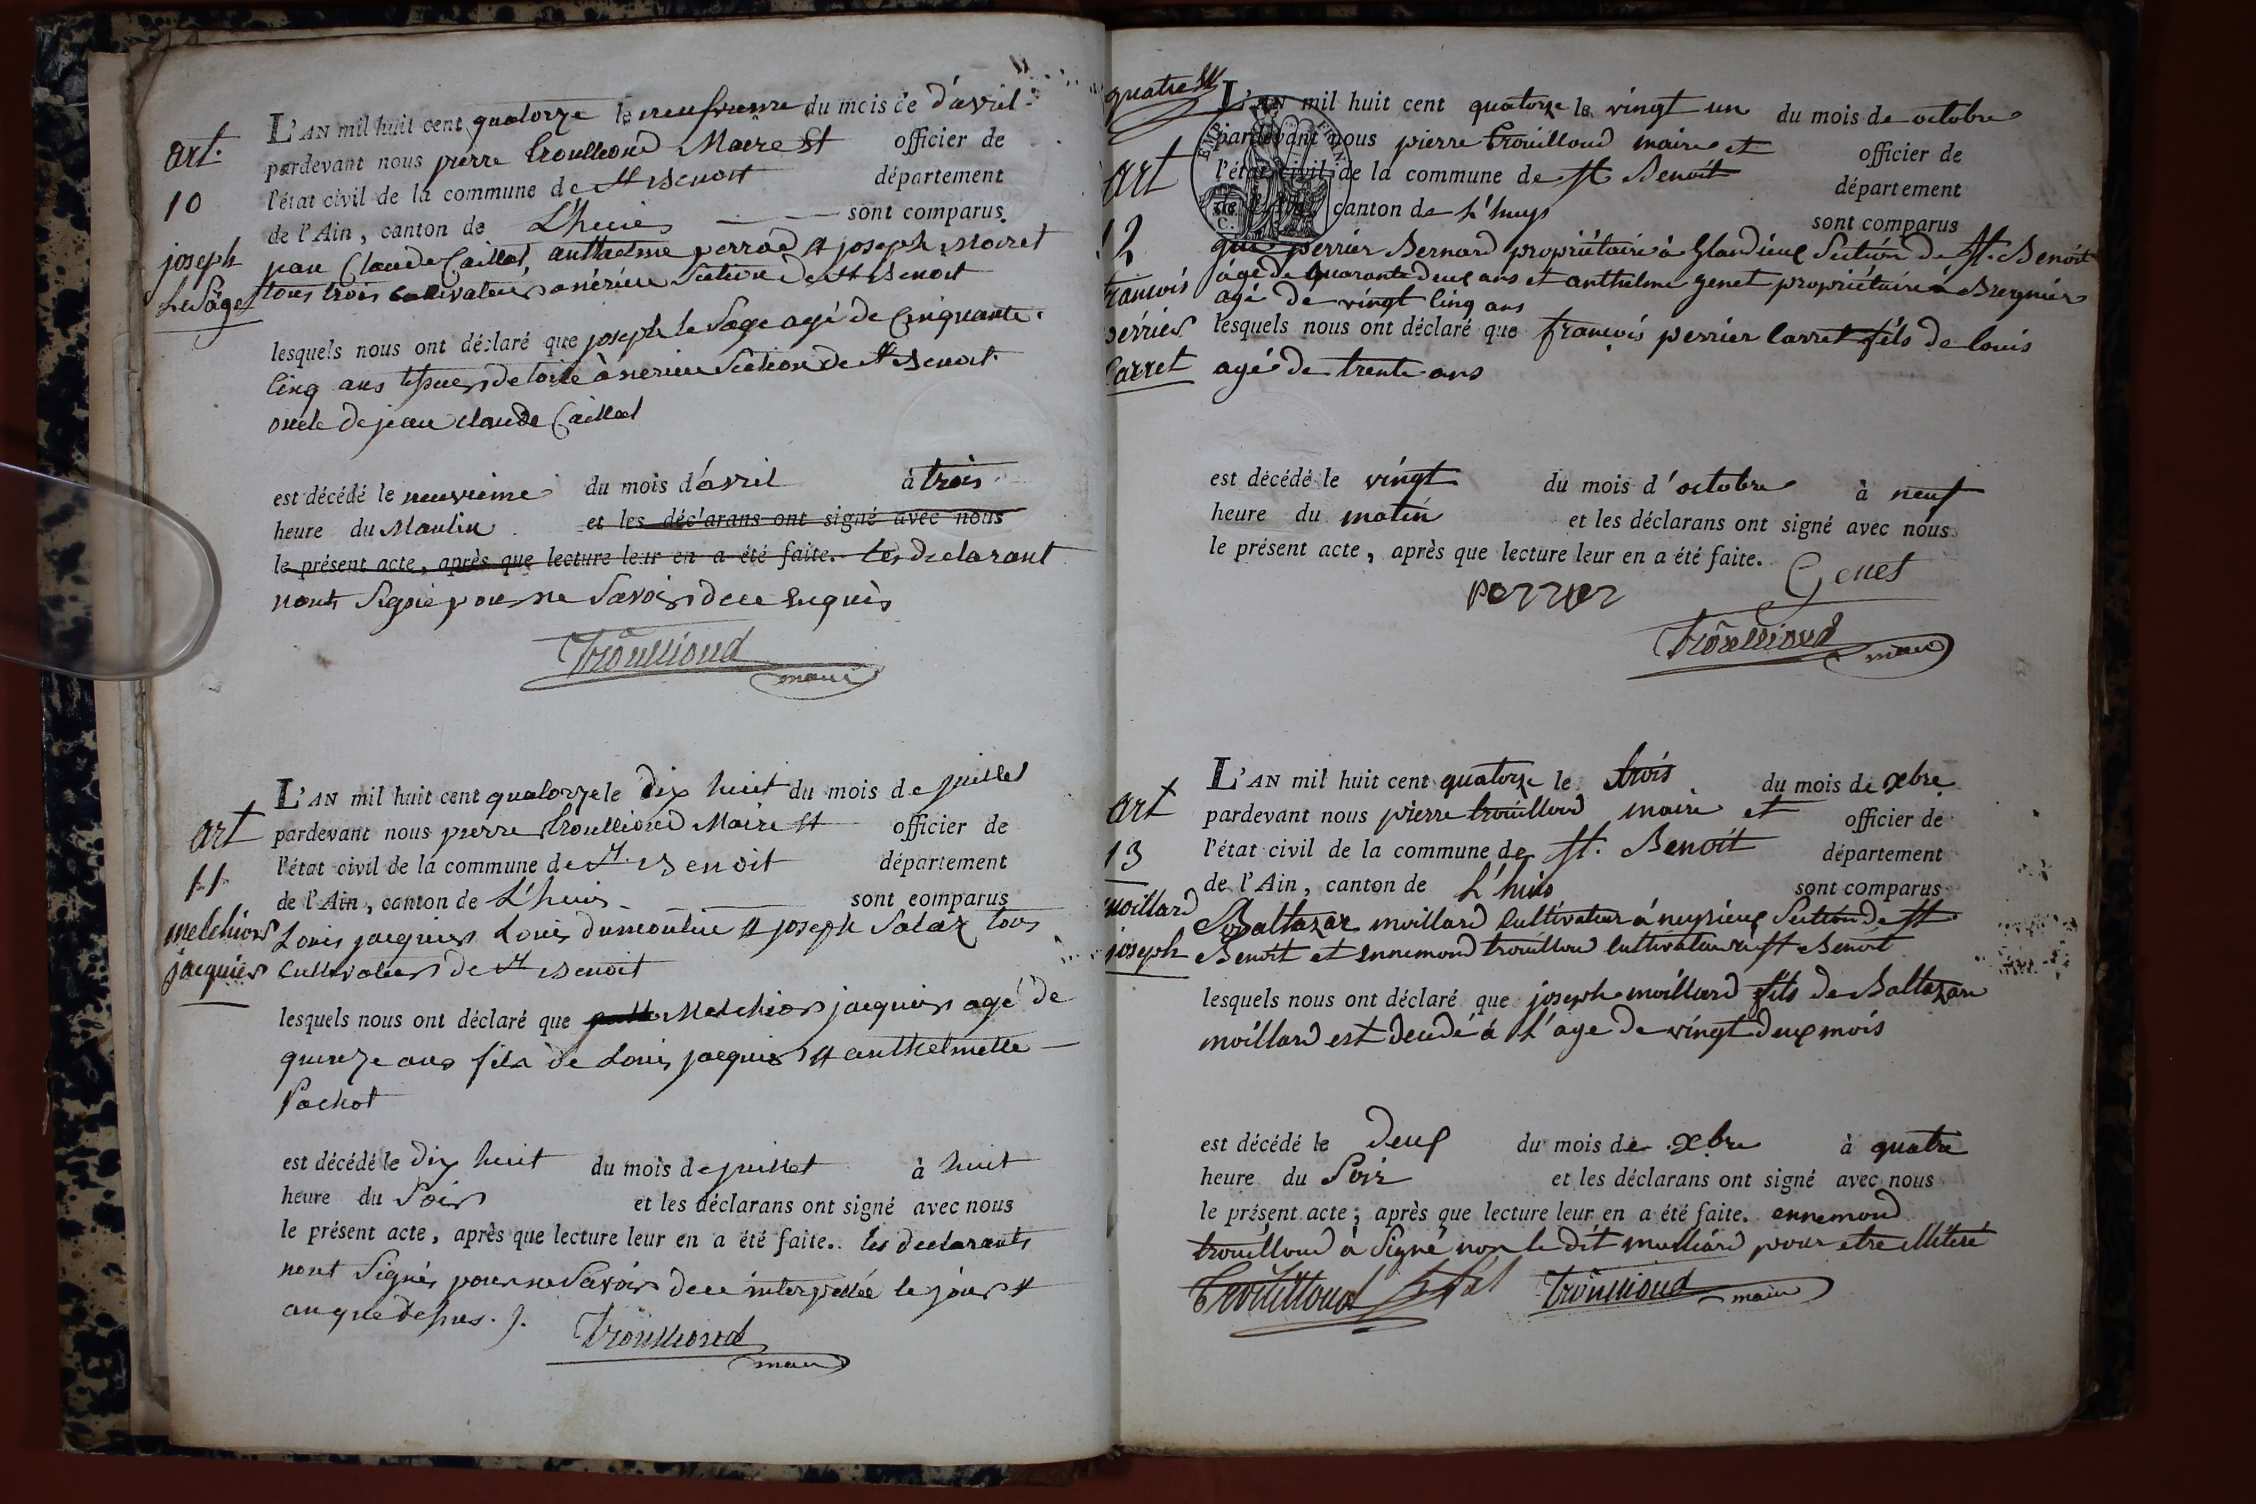 art.
10
joseph
LeSage
L'AN mil huit cent quatorze le neufvieme du mois de d'avril
pardevant nous pierre trouilloud Maire et officier de
l'état civil de la commune de St Benoit département
de l'Ain, canton de L'huis sont comparus
Claude Caillat, anthelme perrod et joseph Moiret
tous trois cultivateurs a nérieu Section de St Benoit
lesquels nous ont déclaré que joseph le Sage agé de Cinquante
Cinq ans tisseur de toile à nerieu Section de St Benoit
oncle de jean claude Caillat
est décédé le neuvieme du mois d'avril à trois
heure du Matin et les déclarans ont signé avec nous
le présent acte, après que lecture leur en a été faite. Les declarant
nont Signé pour ne Savoir de ce Enquis
Trouilloud
maire
art
11
melchior
jacquier
L'AN mil huit cent quatorze le dix huit du mois de juillet
pardevant nous pierre trouilloud Maire et officier de
l'état civil de la commune de St Benoit département
de l'Ain, canton de L'huis sont comparus
Louis jacquier Louis dumoulin et joseph Salaz tous
Cultivateurs de St Benoit
lesquels nous ont déclaré que Melchior jacquier agé de
quinze ans fils de Louis jacquier et anthelmette
Pochot
est décédé le dix huit du mois de juillet à huit
heure du Soir et les déclarans ont signé avec nous
le présent acte, après que lecture leur en a été faite. les declarants
nont Signés pour ne Savoir de ce interpellée le jour et
an que dessus.
Trouilloud
maire
quatre
art
12
francois
perrier
Carret
L'AN mil huit cent quatorze le vingt un du mois de octobre
pardevant nous pierre trouilloud maire et officier de
l'état civil de la commune de St Benoit département
de l'Ain, canton de L'huys sont comparus
que perrier Bernard propriétaire à Glandieux Section de St. Benoit
âgé de quarante deux ans et anthelme genet propriétaire à Bregnier
agé de vingt Cinq ans
lesquels nous ont déclaré que françois perrier Carret fils de louis
agé de trente ans
est décédé le vingt du mois d'octobre à neuf
heure du matin et les déclarans ont signé avec nous
le présent acte, après que lecture leur en a été faite.
Genet
perrier
Trouilloud
maire
art
13
moillard
joseph
L'AN mil huit cent quatorze le trois du mois de xbre
pardevant nous pierre trouilloud maire et officier de
l'état civil de la commune de St. Benoit département
de l'Ain, canton de L'huis sont comparus
Baltazar moillard Cultivateur à neyrieux Section de St
Benoit et ennemond trouilloud cultivateur à St Benoit
lesquels nous ont déclaré que joseph moillard fils de Baltazar
moillard est decedé à L'age de vingt deux mois
est décédé le deux du mois de xbre à quatre
heure du Soir et les déclarans ont signé avec nous
le présent acte, après que lecture leur en a été faite. ennemond
trouilloud à Signé non le dit mulliard pour etre illitéré
Trouilloud
Trouilloud
maire